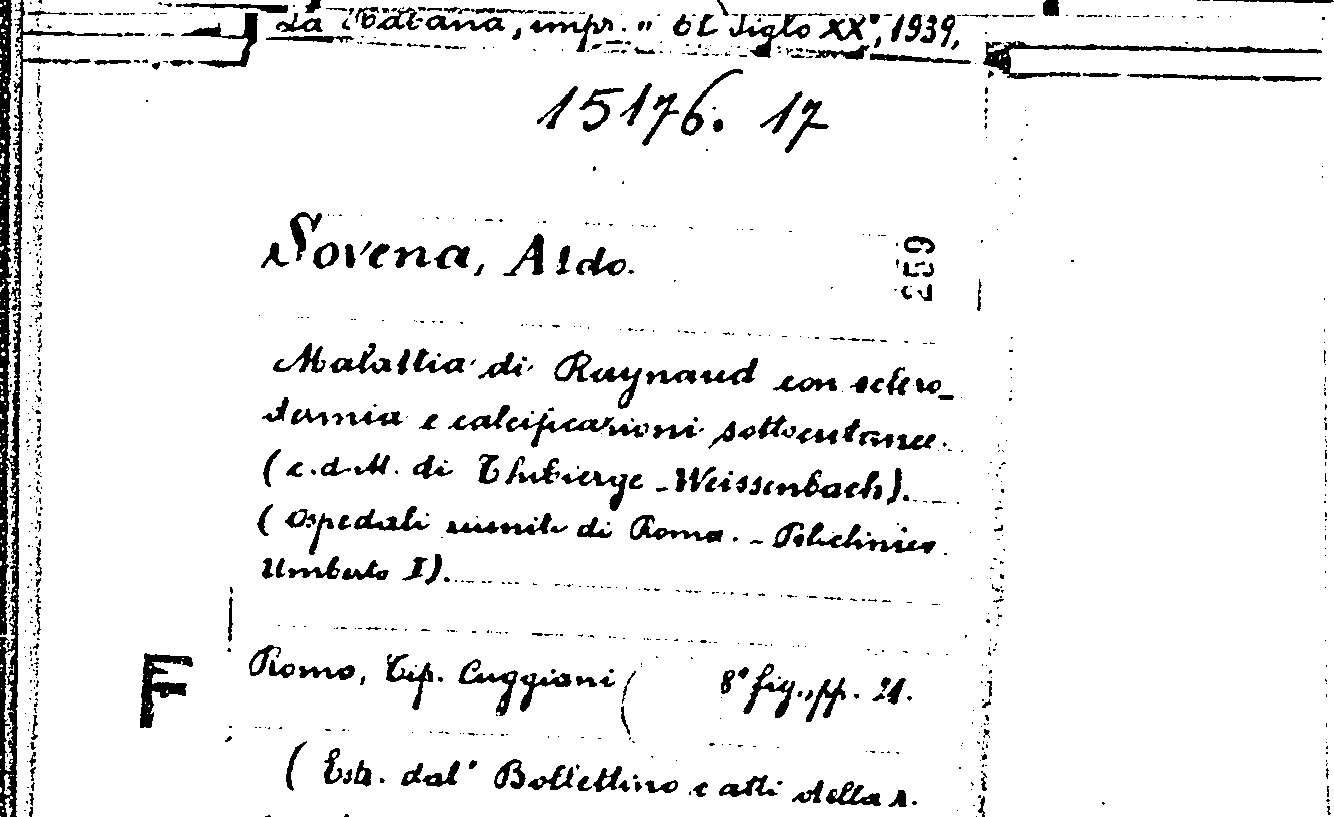 La Habana, impr. "El Siglo XX", 1939,
15176. 17
Sovena, Aldo.
259
Malattia di Raynaud con sclero-
dermia e calcificazioni sottocutanee.
(c.d.M. di Thibierge-Weissenbach).
(Ospedali riuniti di Roma. - Policlinico
Umberto I).
F
Roma, Tip. Cuggiani (      8° fig., pp. 21.
(Estr. dal' Bollettino e atti della r.